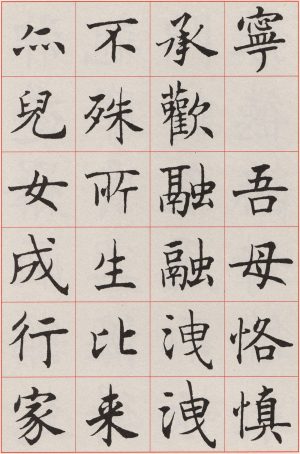 寧 吾母恪慎
承歡融融洩洩
不殊所生比来
兒女成行家